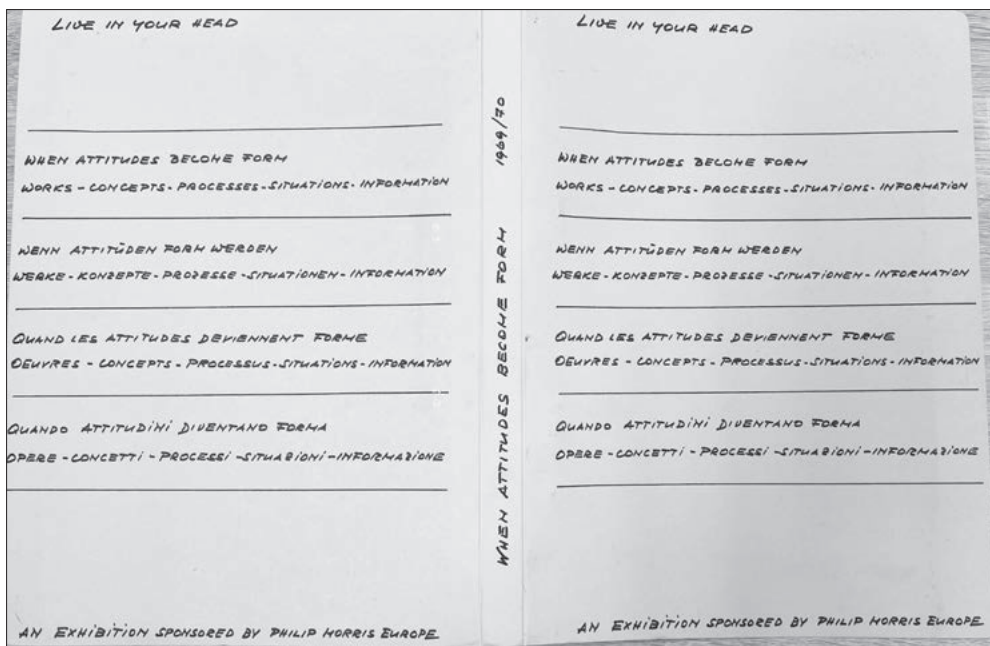 LIVE IN YOUR HEAD
WHEN ATTITUDES BECOME FORM
WORKS - CONCEPTS - PROCESSES - SITUATIONS - INFORMATION
WENN ATTITÜDEN FORM WERDEN
WERKE - KONZEPTE - PROZESSE - SITUATIONEN - INFORMATION
QUAND LES ATTITUDES DEVIENNENT FORME
OEUVRES - CONCEPTS - PROCESSUS - SITUATIONS - INFORMATION
QUANDO ATTITUDINI DIVENTANO FORMA
OPERE - CONCETTI - PROCESSI - SITUAZIONI - INFORMAZIONE
AN EXHIBITION SPONSORED BY PHILIP MORRIS EUROPE
WHEN ATTITUDES BECOME FORM 1969/70
LIVE IN YOUR HEAD
WHEN ATTITUDES BECOME FORM
WORKS - CONCEPTS - PROCESSES - SITUATIONS - INFORMATION
WENN ATTITÜDEN FORM WERDEN
WERKE - KONZEPTE - PROZESSE - SITUATIONEN - INFORMATION
QUAND LES ATTITUDES DEVIENNENT FORME
OEUVRES - CONCEPTS - PROCESSUS - SITUATIONS - INFORMATION
QUANDO ATTITUDINI DIVENTANO FORMA
OPERE - CONCETTI - PROCESSI - SITUAZIONI - INFORMAZIONE
AN EXHIBITION SPONSORED BY PHILIP MORRIS EUROPE